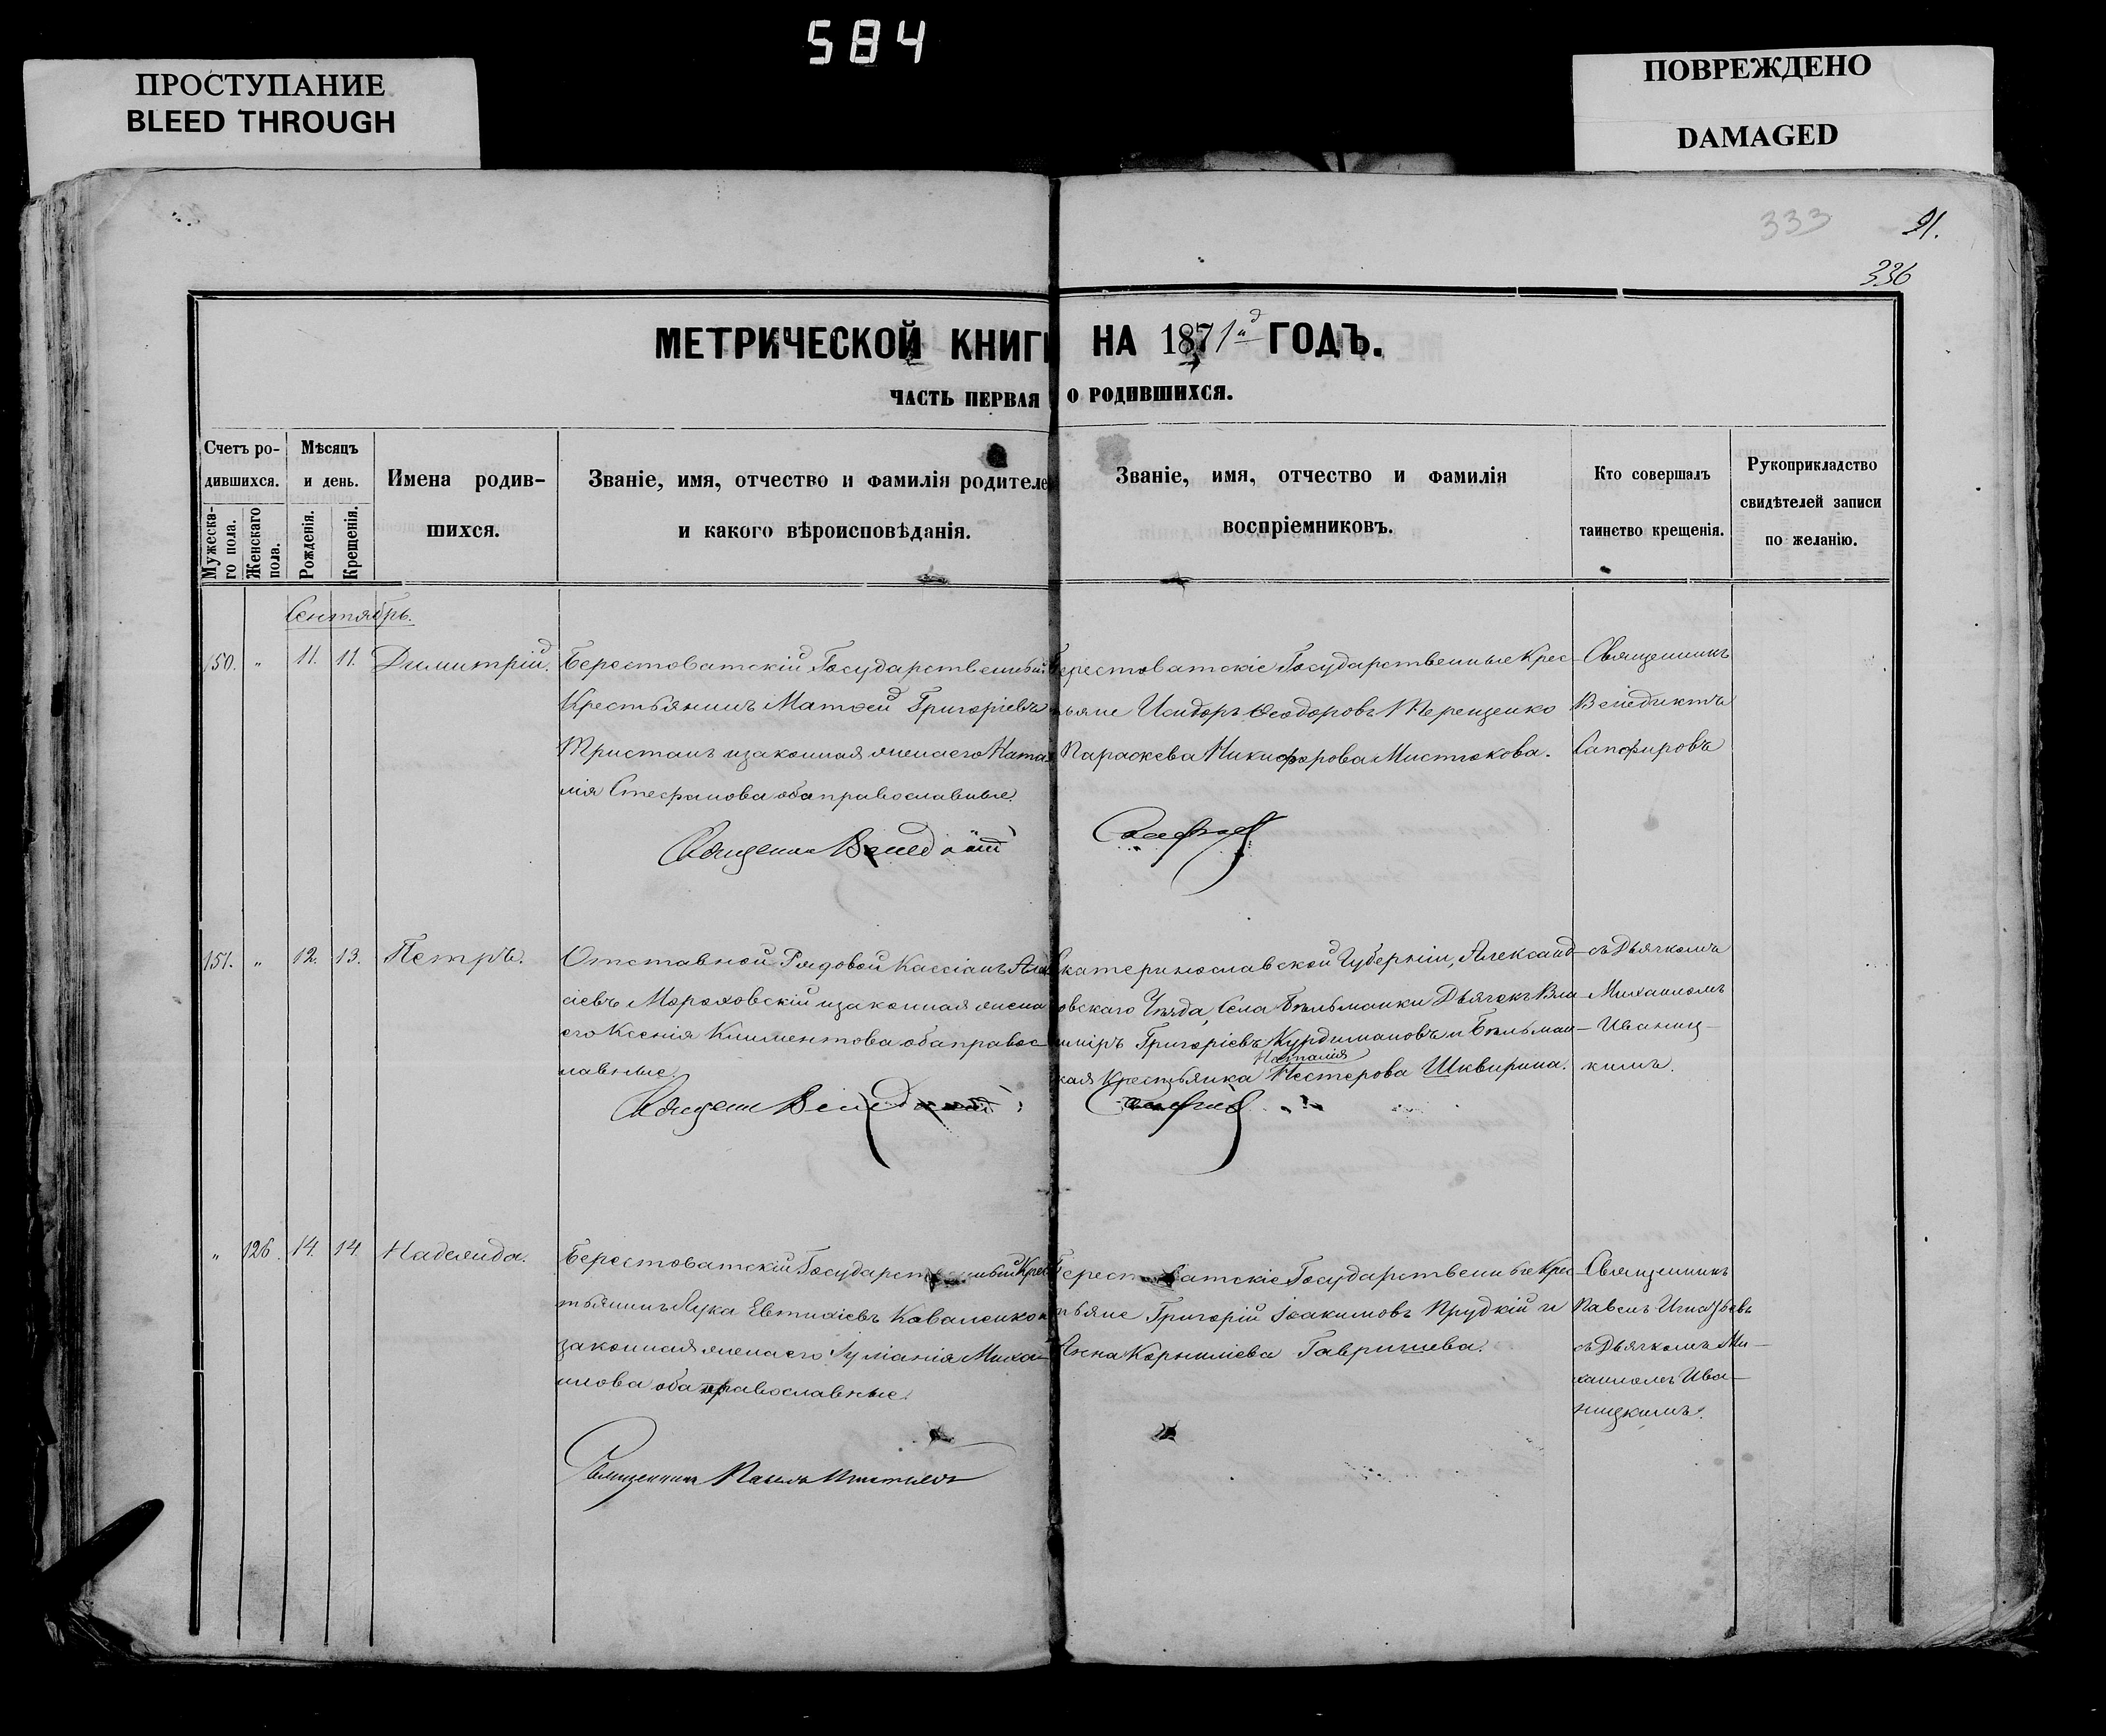 584
ПРОСТУПАНИЕ
BLEED THROUGH
ПОВРЕЖДЕНО
DAMAGED
333
91.
336
МЕТРИЧЕСКОЙ КНИГИ НА 1871й ГОДЪ.
ЧАСТЬ ПЕРВАЯ О РОДИВШИХСЯ.
Счетъ ро-
дившихся.
Мужеска-
го пола.
Женскаго
пола.
Мѣсяцъ
и день.
Рожденія.
Крещенія.
Имена родив-
шихся.
Званіе, имя, отчество и фамилія родителе
и какого вѣроисповѣданія.
Званіе, имя, отчество и фамилія
воспріемниковъ.
Кто совершалъ
таинство крещенія.
Рукоприкладство
свидѣтелей записи
по желанію.
Сентябрь.
150. " 11. 11. Димитрій.
Берестоватскій Государственный
Крестьянинъ Матѳей Григоріевъ
Тристанъ и законная жена его Ната
лія Стефанова оба православные.
Берестоватскіе Государственные Крес-
тьяне Исидоръ Ѳеодоровъ Терещенко
Параскева Никифорова Мистюкова.
Священникъ
Венедиктъ
Сапфировъ
151. " 12. 13. Петръ.
Отставной Рядовой Кассіанъ
сіевъ Мороховскій и законная жена
его Ксенія Климентова оба правос
лавные.
Екатеринославской Губерніи, Александ-
овскаго Уѣзда, Села Бѣльманки Дьячекъ Вла-
иміръ Григоріевъ Курдимановъ и Бѣльман-
Наталія
кая Крестьянка Нестерова Шквирина.
съ Дьячкомъ
Михаиломъ
Иваниц-
кимъ.
" 126. 14. 14. Надежда.
Берестоватскій Государственный Крес
тьянинъ Лука Евтихіевъ Коваленко и
законная жена его Іуліанія Миха-
илова оба православные.
Берестоватскіе Государственные Крес-
тьяне Григорій Іоакимовъ Прудкій и
Анна Корниліева Гавришева.
Священникъ
Павелъ Игнатьевъ
съ Дьячкомъ Ми-
хаиломъ Ива-
ницкимъ.
Священникъ Павелъ Игнатьевъ